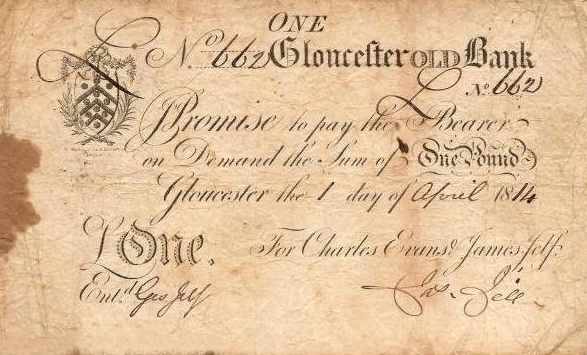 ONE
No 662 Gloucester OLD Bank
No. 662
I Promise to pay the Bearer
on Demand the Sum of One Pound
Gloucester the 1 day of April 1814
£ One.
For Charles Evans & James Jelf.
Entd. Geo Jelf
Jas. Jelf